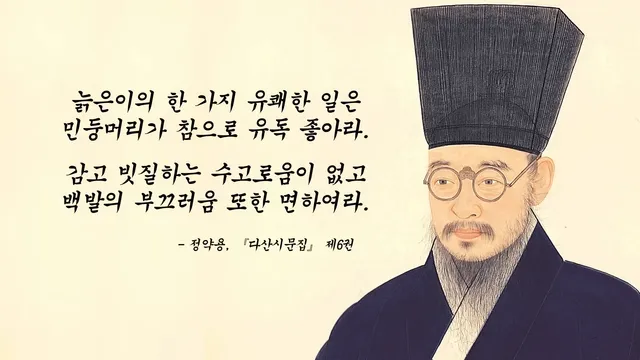 늙은이의 한 가지 유쾌한 일은
민둥머리가 참으로 유독 좋아라.
감고 빗질하는 수고로움이 없고
백발의 부끄러움 또한 면하여라.
- 정약용, 『다산시문집』 제6권